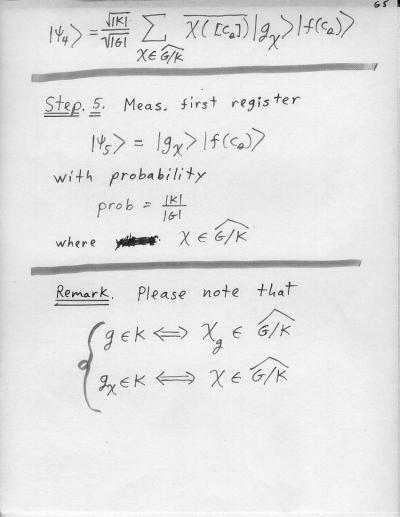 65
|ψ₄⟩ = √|K|/√|G| ∑_{χ∈\widehat{G/K}} \overline{χ([c_a])} |g_χ⟩|f(c_a)⟩
Step. 5. Meas. first register
|ψ₅⟩ = |g_χ⟩|f(c_a)⟩
with probability
prob = |K|/|G|
where χ ∈ \widehat{G/K}
Remark. Please note that
g ∈ K ⟺ χ_g ∈ \widehat{G/K}
g_χ ∈ K ⟺ χ ∈ \widehat{G/K}